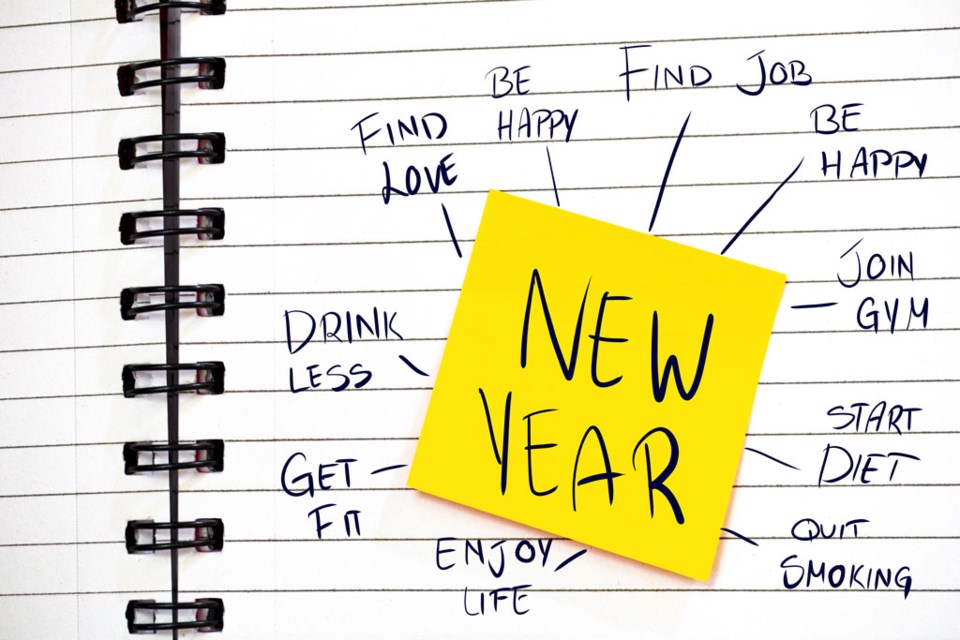 FIND JOB
BE
HAPPY
BE
HAPPY
FIND
LOVE
JOIN
GYM
NEW
YEAR
DRINK
LESS
START
DIET
GET
FIT
QUIT
SMOKING
ENJOY
LIFE